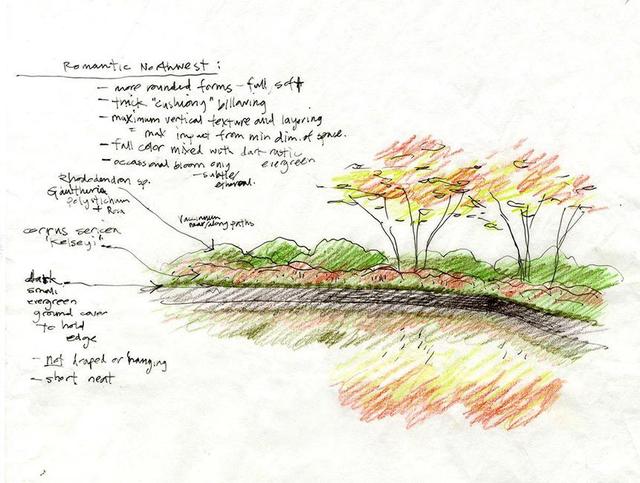 Romantic Northwest:
- more rounded forms - full, soft
- thick "cushiony" billowing
- maximum vertical texture and layering
= max impact from min dim. of space.
- full color mixed with dark rustic
evergreen
- occassional bloom only
- subtle/
ephemeral.
Rhododendron sp.
Gaultheria
polystichum
+ Rosa
Vaccinium
near/along paths
cornus sericea
"Kelseyi"
dark
small
evergreen
ground cover
to hold
edge
- not draped or hanging
- short neat